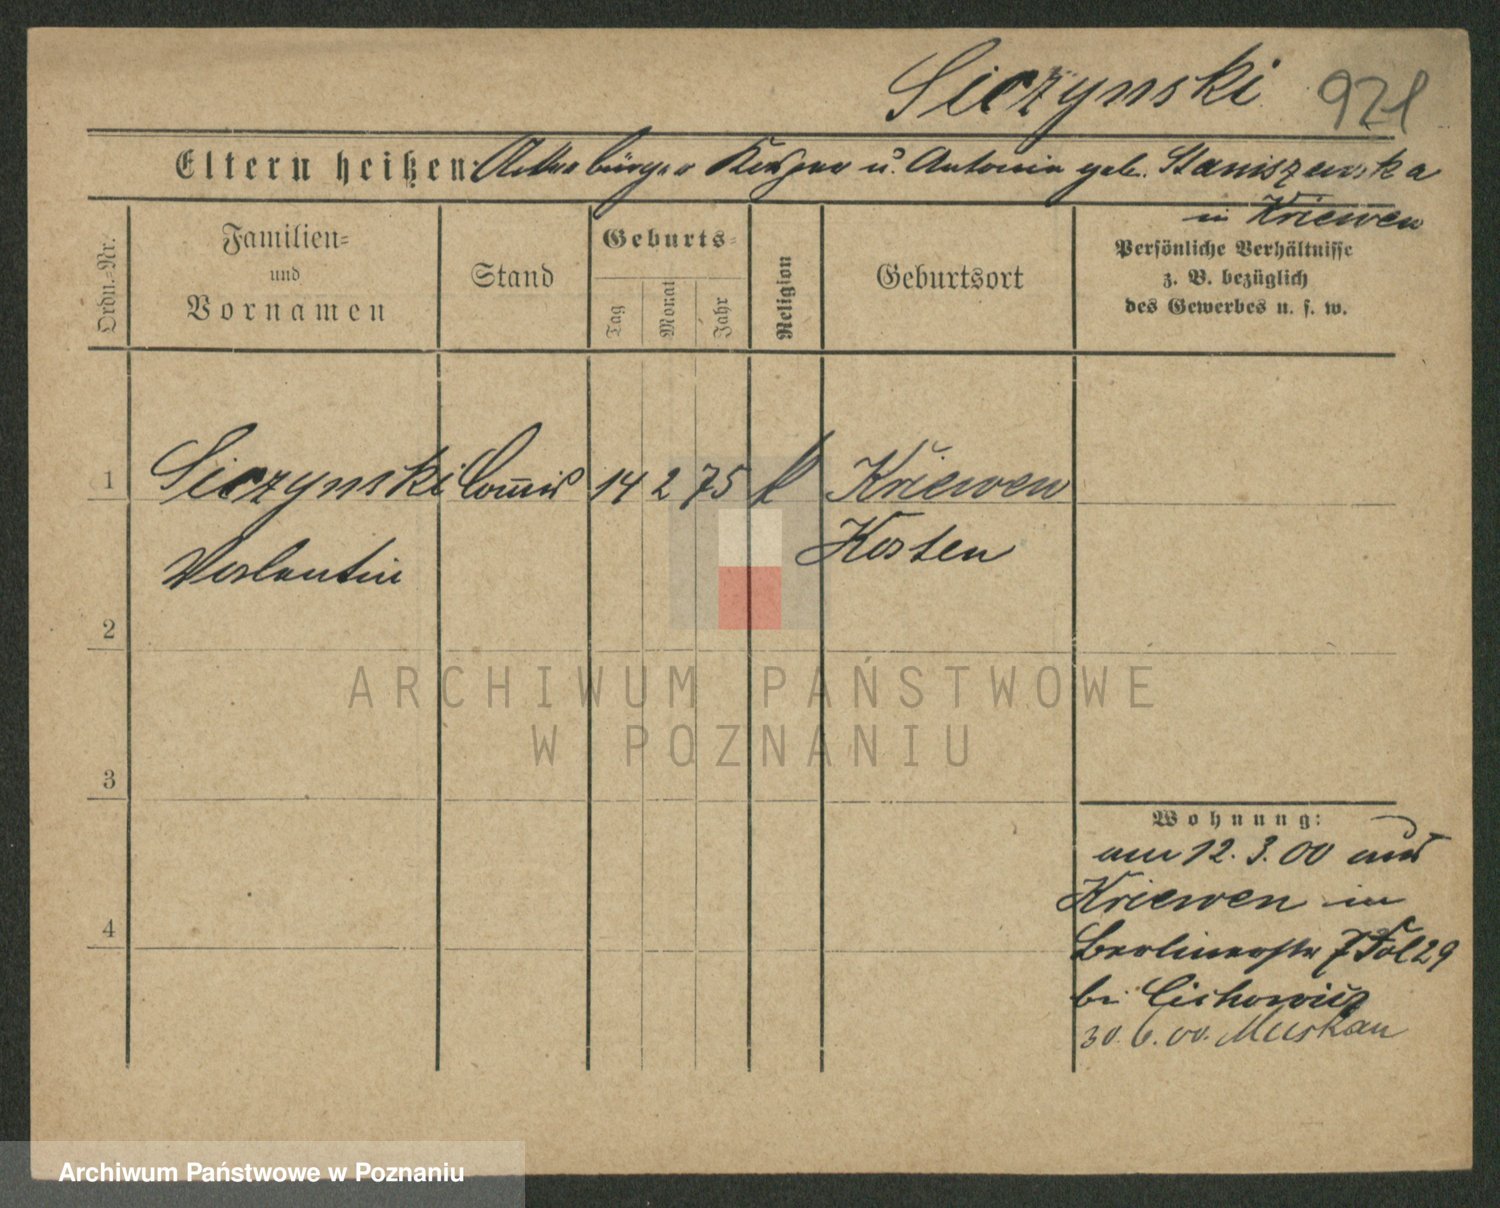 Siczynski 921
Eltern heißen: Ackerbürger Kaspar u. Antonin geb. Staniszewska
in Kriewen
Ordn.-Nr.
Familien-
und
Vornamen
Stand
Geburts-
Tag
Monat
Jahr
Religion
Geburtsort
Persönliche Verhältnisse
z. B. bezüglich
des Gewerbes u. s. w.
1 Siczynski Commis 14 2 75 k Kriewen
Valentin Kosten
2
3
4
Wohnung:
am 12.3.00 aus
Kriewen in
Berlinerstr 7 Fol 29
bei Cichowicz
30.6.00. Muskau
ARCHIWUM PAŃSTWOWE
W POZNANIU
Archiwum Państwowe w Poznaniu